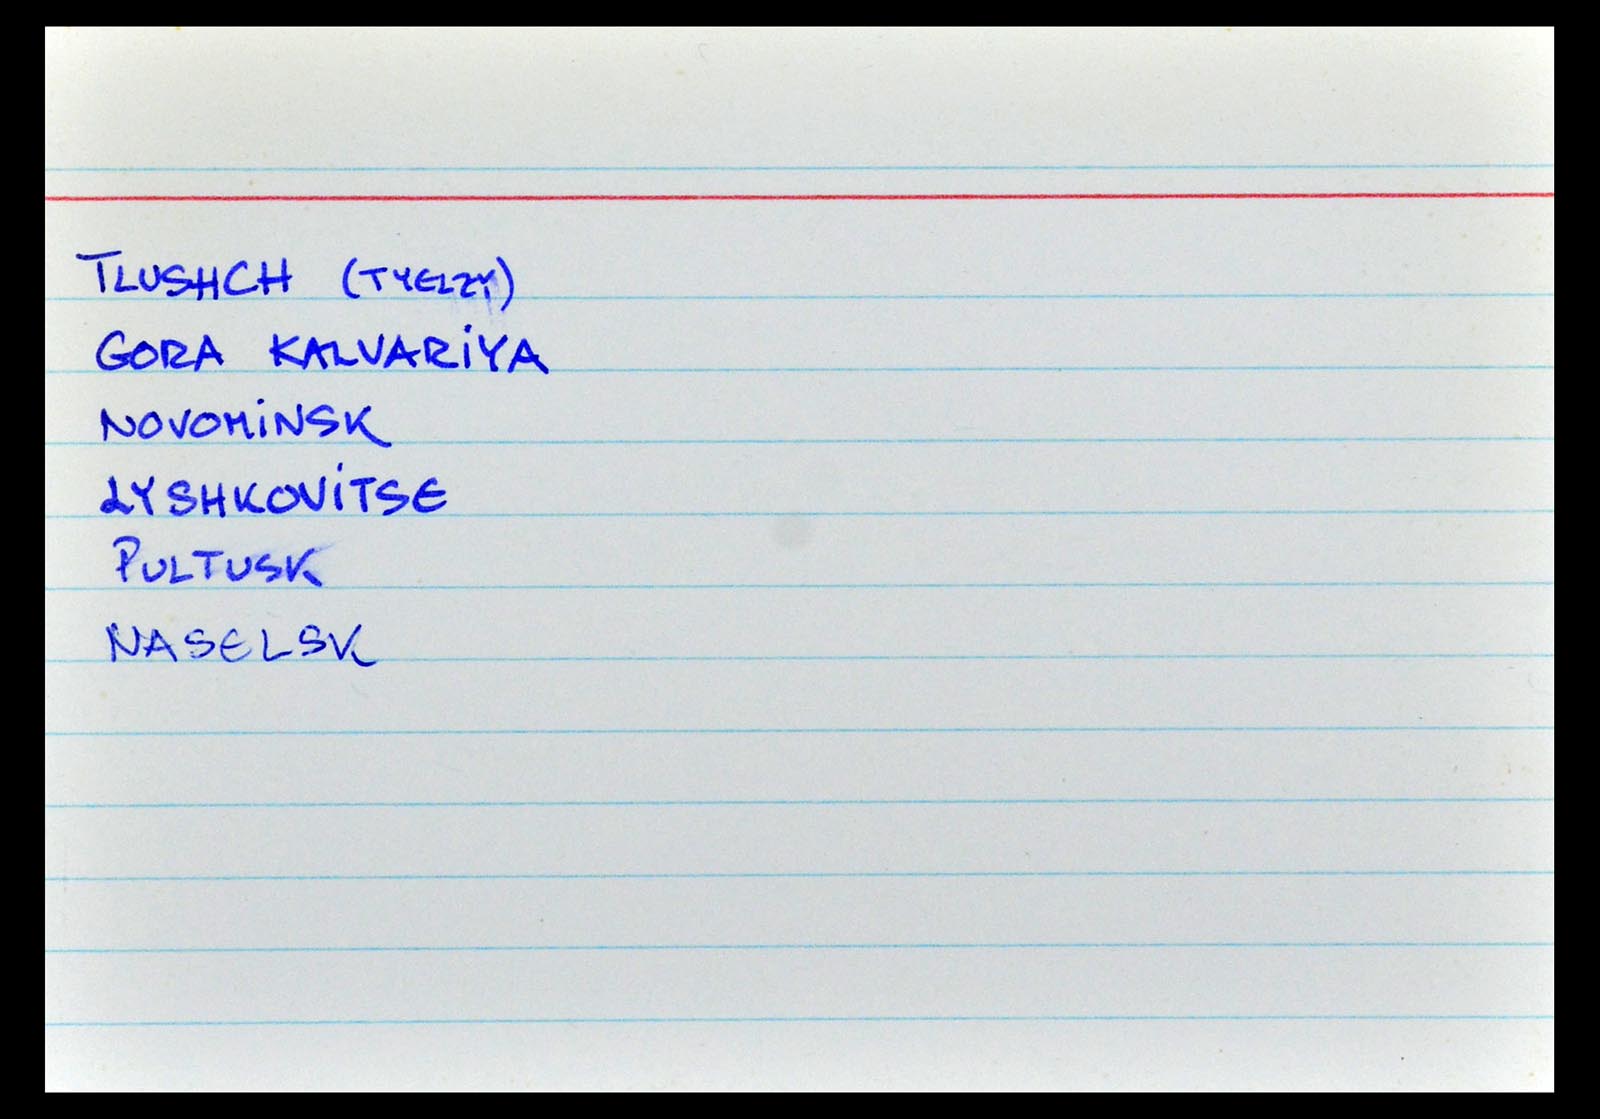 TLUSHCH (TYELZY)
GORA KALVARIYA
NOVOMINSK
LYSHKOVITSE
PULTUSK
NASELSK